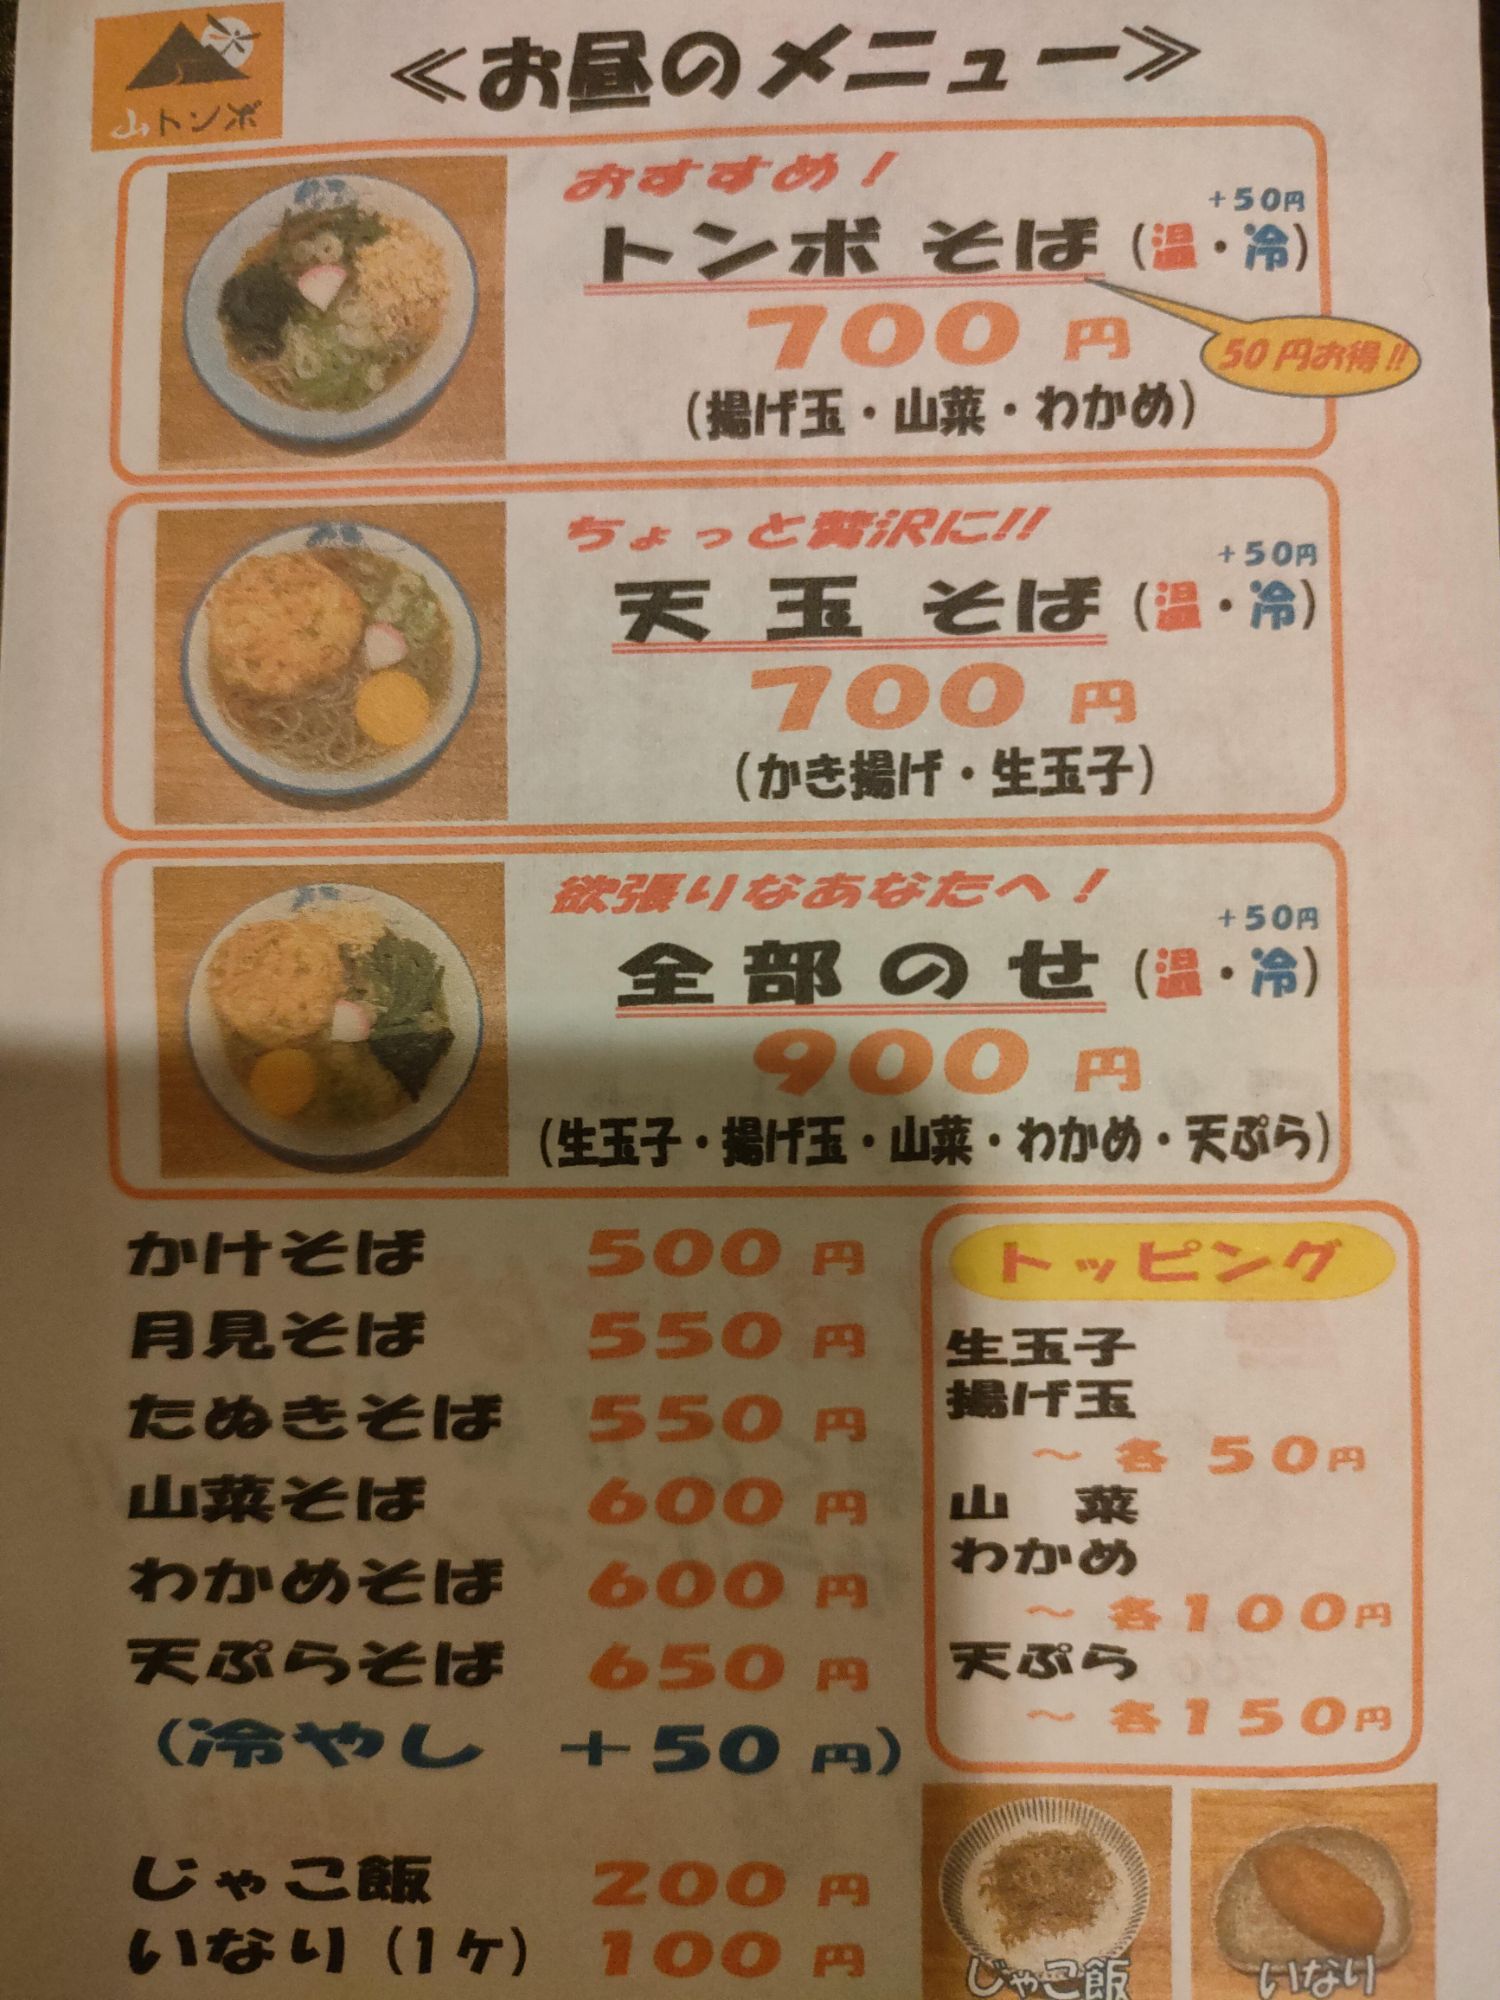 山トンボ
≪お昼のメニュー≫
おすすめ！
+50円
トンボ そば (温・冷)
700 円
50円お得!!
(揚げ玉・山菜・わかめ)
ちょっと贅沢に!!
+50円
天 玉 そば (温・冷)
700 円
(かき揚げ・生玉子)
欲張りなあなたへ！
+50円
全 部 の せ (温・冷)
900 円
(生玉子・揚げ玉・山菜・わかめ・天ぷら)
かけそば 500 円
月見そば 550 円
たぬきそば 550 円
山菜そば 600 円
わかめそば 600 円
天ぷらそば 650 円
(冷やし +50 円)
じゃこ飯 200 円
いなり (1ヶ) 100 円
トッピング
生玉子
揚げ玉
～ 各 50円
山 菜
わかめ
～ 各100円
天ぷら
～ 各150円
じゃこ飯
いなり